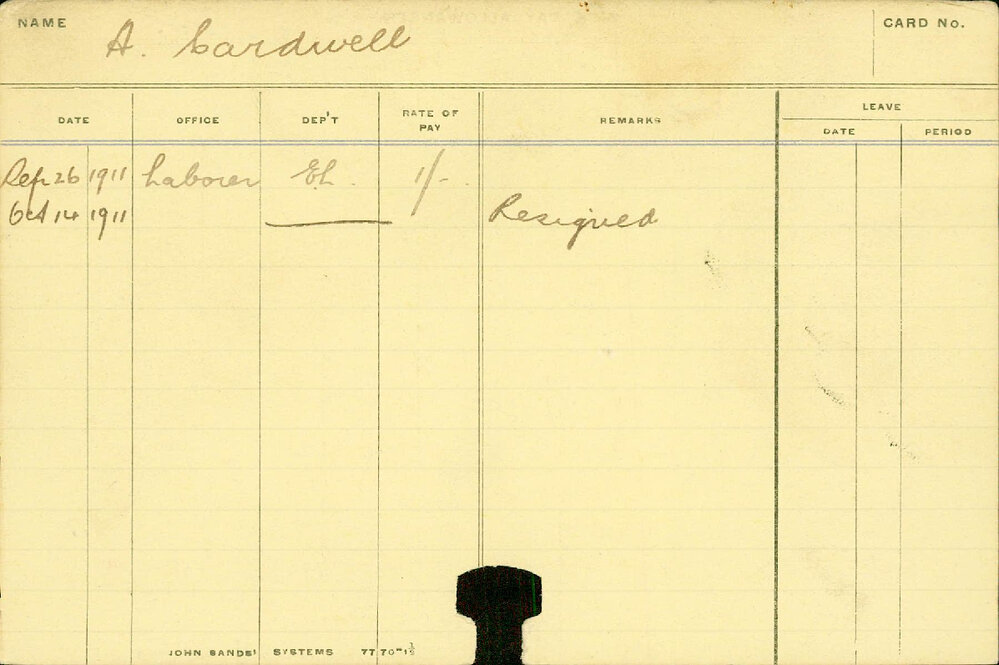 NAME A. Cardwell CARD No.
DATE OFFICE DEP'T RATE OF PAY REMARKS LEAVE
DATE PERIOD
Sep 26 1911 Laborer EL. 1/-
Oct 14 1911 Resigned
JOHN SANDS' SYSTEMS